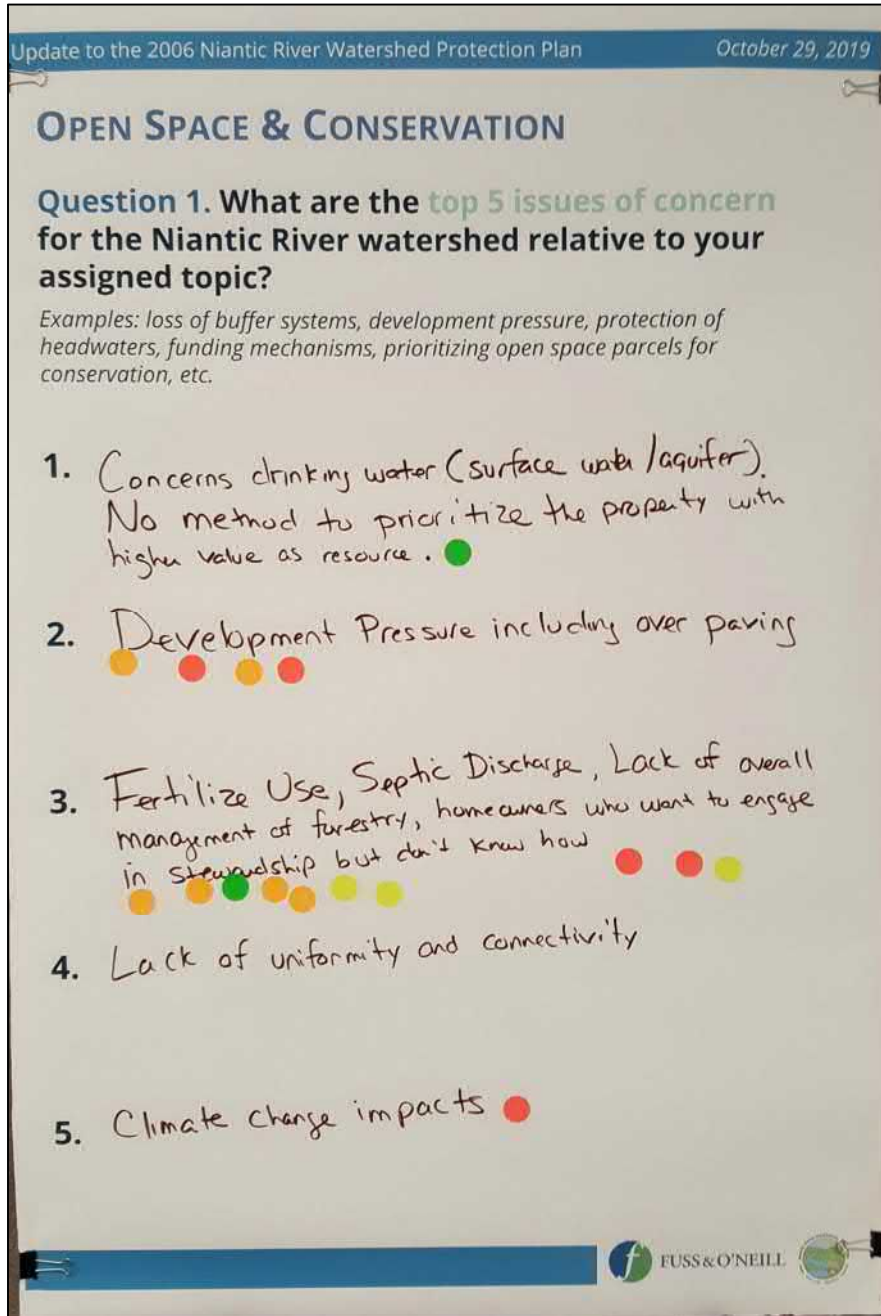 Update to the 2006 Niantic River Watershed Protection Plan October 29, 2019
OPEN SPACE & CONSERVATION
Question 1. What are the top 5 issues of concern
for the Niantic River watershed relative to your
assigned topic?
Examples: loss of buffer systems, development pressure, protection of
headwaters, funding mechanisms, prioritizing open space parcels for
conservation, etc.
1. Concerns drinking water (surface water/aquifer).
No method to prioritize the property with
higher value as resource.
2. Development Pressure including over paving
3. Fertilize Use, Septic Discharge, Lack of overall
management of forestry, homeowners who want to engage
in stewardship but don't know how
4. Lack of uniformity and connectivity
5. Climate change impacts
f FUSS & O'NEILL